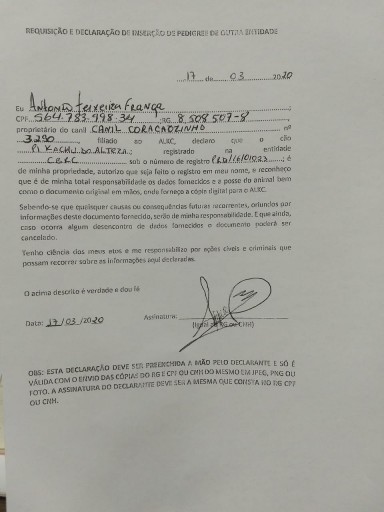 REQUISIÇÃO E DECLARAÇÃO DE INSERÇÃO DE PEDIGREE DE OUTRA ENTIDADE
17 de 03 2020
Eu Antonio Teixeira França
CPF 564.783.998-34 RG 8.508.507-8,
proprietário do canil CANIL CORAÇÃOZINHO nº
3.290 filiado ao AUKC, declaro que o cão
PIKACHU DO ALTEZA; registrado na entidade
CBKC sob o número de registro ; é
de minha propriedade, autorizo que seja feito o registro em meu nome, e reconheço
que é de minha total responsabilidade os dados fornecidos e a posse do animal bem
como o documento original em mãos, onde forneço a cópia digital para o AUKC.
Sabendo-se que quaisquer causas ou consequências futuras recorrentes, oriundas por
informações deste documento fornecido, serão de minha responsabilidade. E que ainda,
caso ocorra algum desencontro de dados fornecidos o documento poderá ser
cancelado.
Tenho ciência dos meus atos e me responsabilizo por ações cíveis e criminais que
possam recorrer sobre as informações aqui declaradas.
O acima descrito é verdade e dou fé
Assinatura:
Data: 17/03/2020 (igual ao RG ou CNH)
OBS: ESTA DECLARAÇÃO DEVE SER PREENCHIDA A MÃO PELO DECLARANTE E SÓ É
VÁLIDA COM O ENVIO DAS CÓPIAS DO RG E CPF OU CNH DO MESMO EM JPEG, PNG OU
FOTO. A ASSINATURA DO DECLARANTE DEVE SER A MESMA QUE CONSTA NO RG CPF
OU CNH.